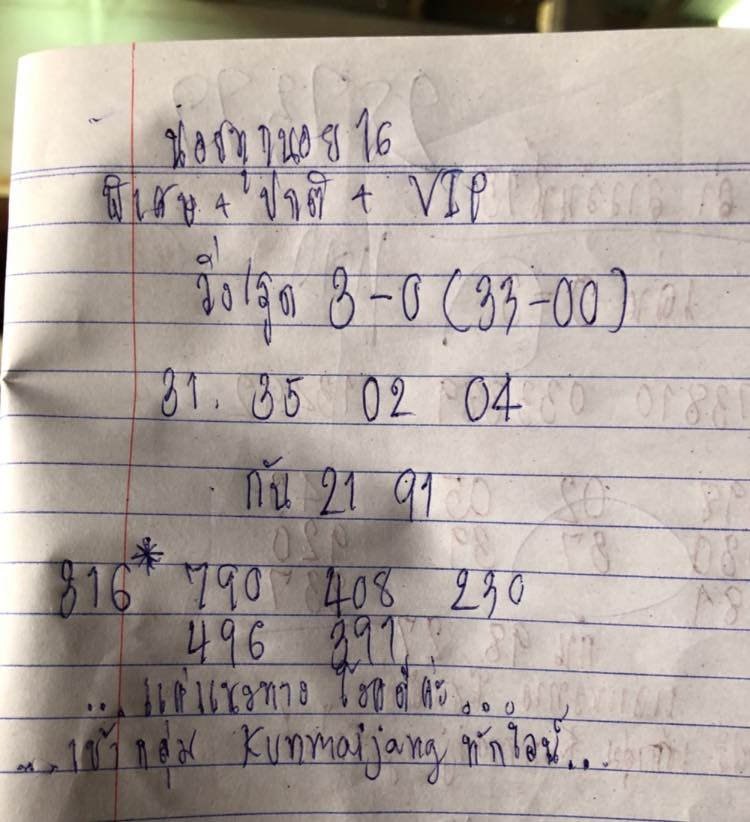 น่อยทำนอย 16
พิเศษ + ปกติ + VIP
วิ่ง/รูด 3-0 (33-00)
31. 35 02 04
กัน 21 91
316* 790 408 230
496 391
...แค่แนวทาง โชคดีค่ะ....,
....เข้ากลุ่ม Kunmaijang ทักไลน์...